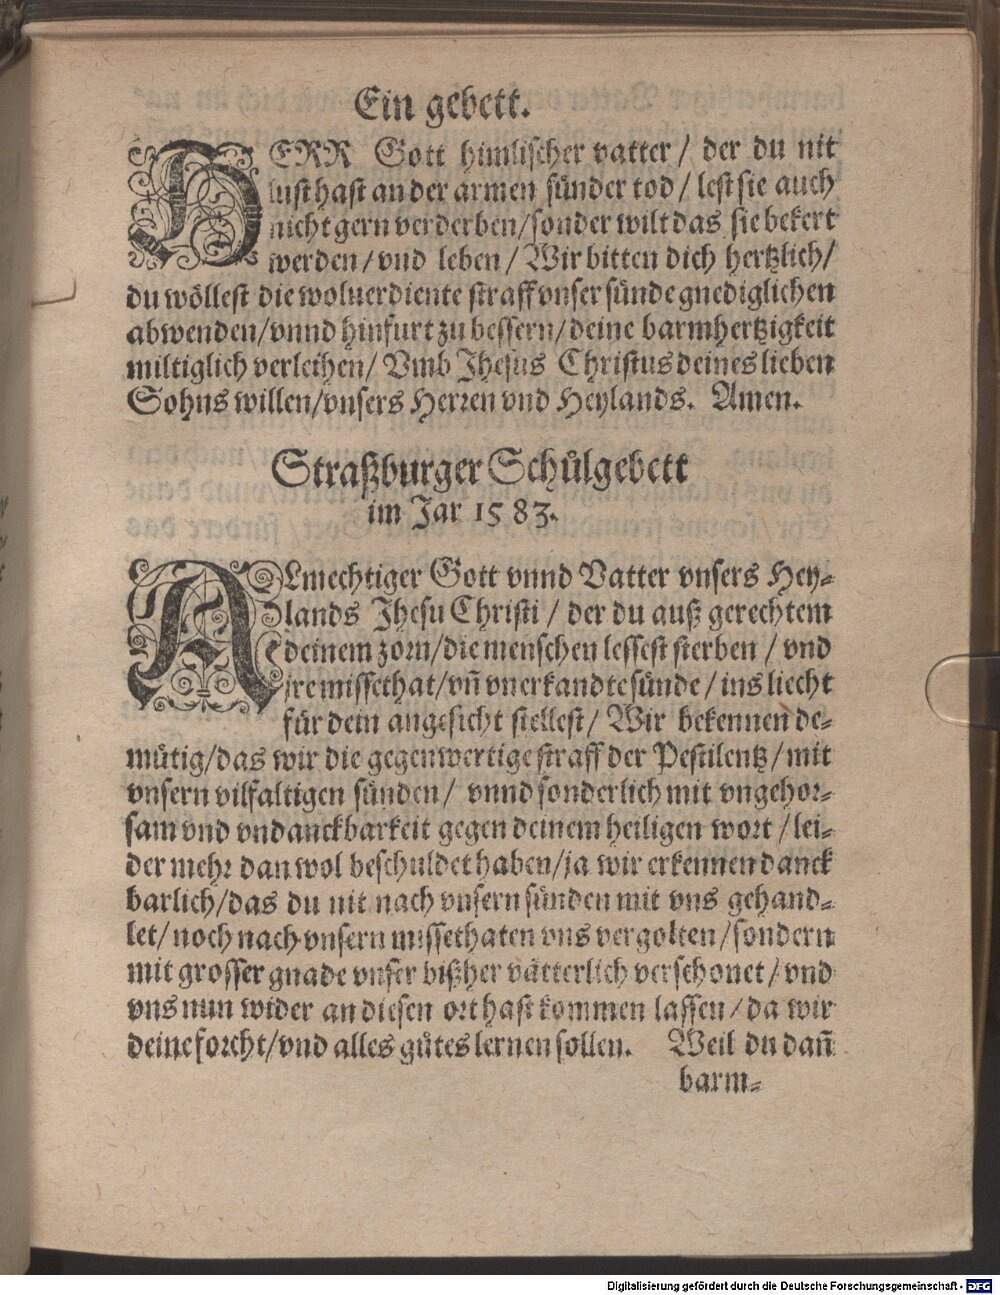 Ein gebett.
HERR Gott himlischer vatter / der du nit
lust hast an der armen sünder tod / lest sie auch
nicht gern verderben / sonder wilt das sie bekert
werden / vnd leben / Wir bitten dich hertzlich /
du wöllest die woluerdiente straff vnser sünde gnediglichen
abwenden / vnnd hinfurt zu bessern / deine barmhertzigkeit
miltiglich verleihen / Vmb Jhesus Christus deines lieben
Sohns willen / vnsers Herren vnd Heylands. Amen.
Straßburger Schůlgebett
im Jar 1583.
ALmechtiger Gott vnnd Vatter vnsers Hey-
lands Jhesu Christi / der du auß gerechtem
deinem zorn / die menschen lessest sterben / vnd
jre missethat / vn̄ vnerkandte sünde / ins liecht
für dein angesicht stellest / Wir bekennen de-
mütig / das wir die gegenwertige straff der Pestilentz / mit
vnsern vilfaltigen sünden / vnnd sonderlich mit vngehor-
sam vnd vndanckbarkeit gegen deinem heiligen wort / lei-
der mehr dan wol beschuldet haben / ja wir erkennen danck
barlich / das du nit nach vnsern sünden mit vns gehand-
let / noch nach vnsern missethaten vns vergolten / sondern
mit grosser gnade vnser bißher vätterlich verschonet / vnd
vns nun wider an diesen ort hast kommen lassen / da wir
deine forcht / vnd alles gůtes lernen sollen. Weil du dan̄
barm-
Digitalisierung gefördert durch die Deutsche Forschungsgemeinschaft - DFG